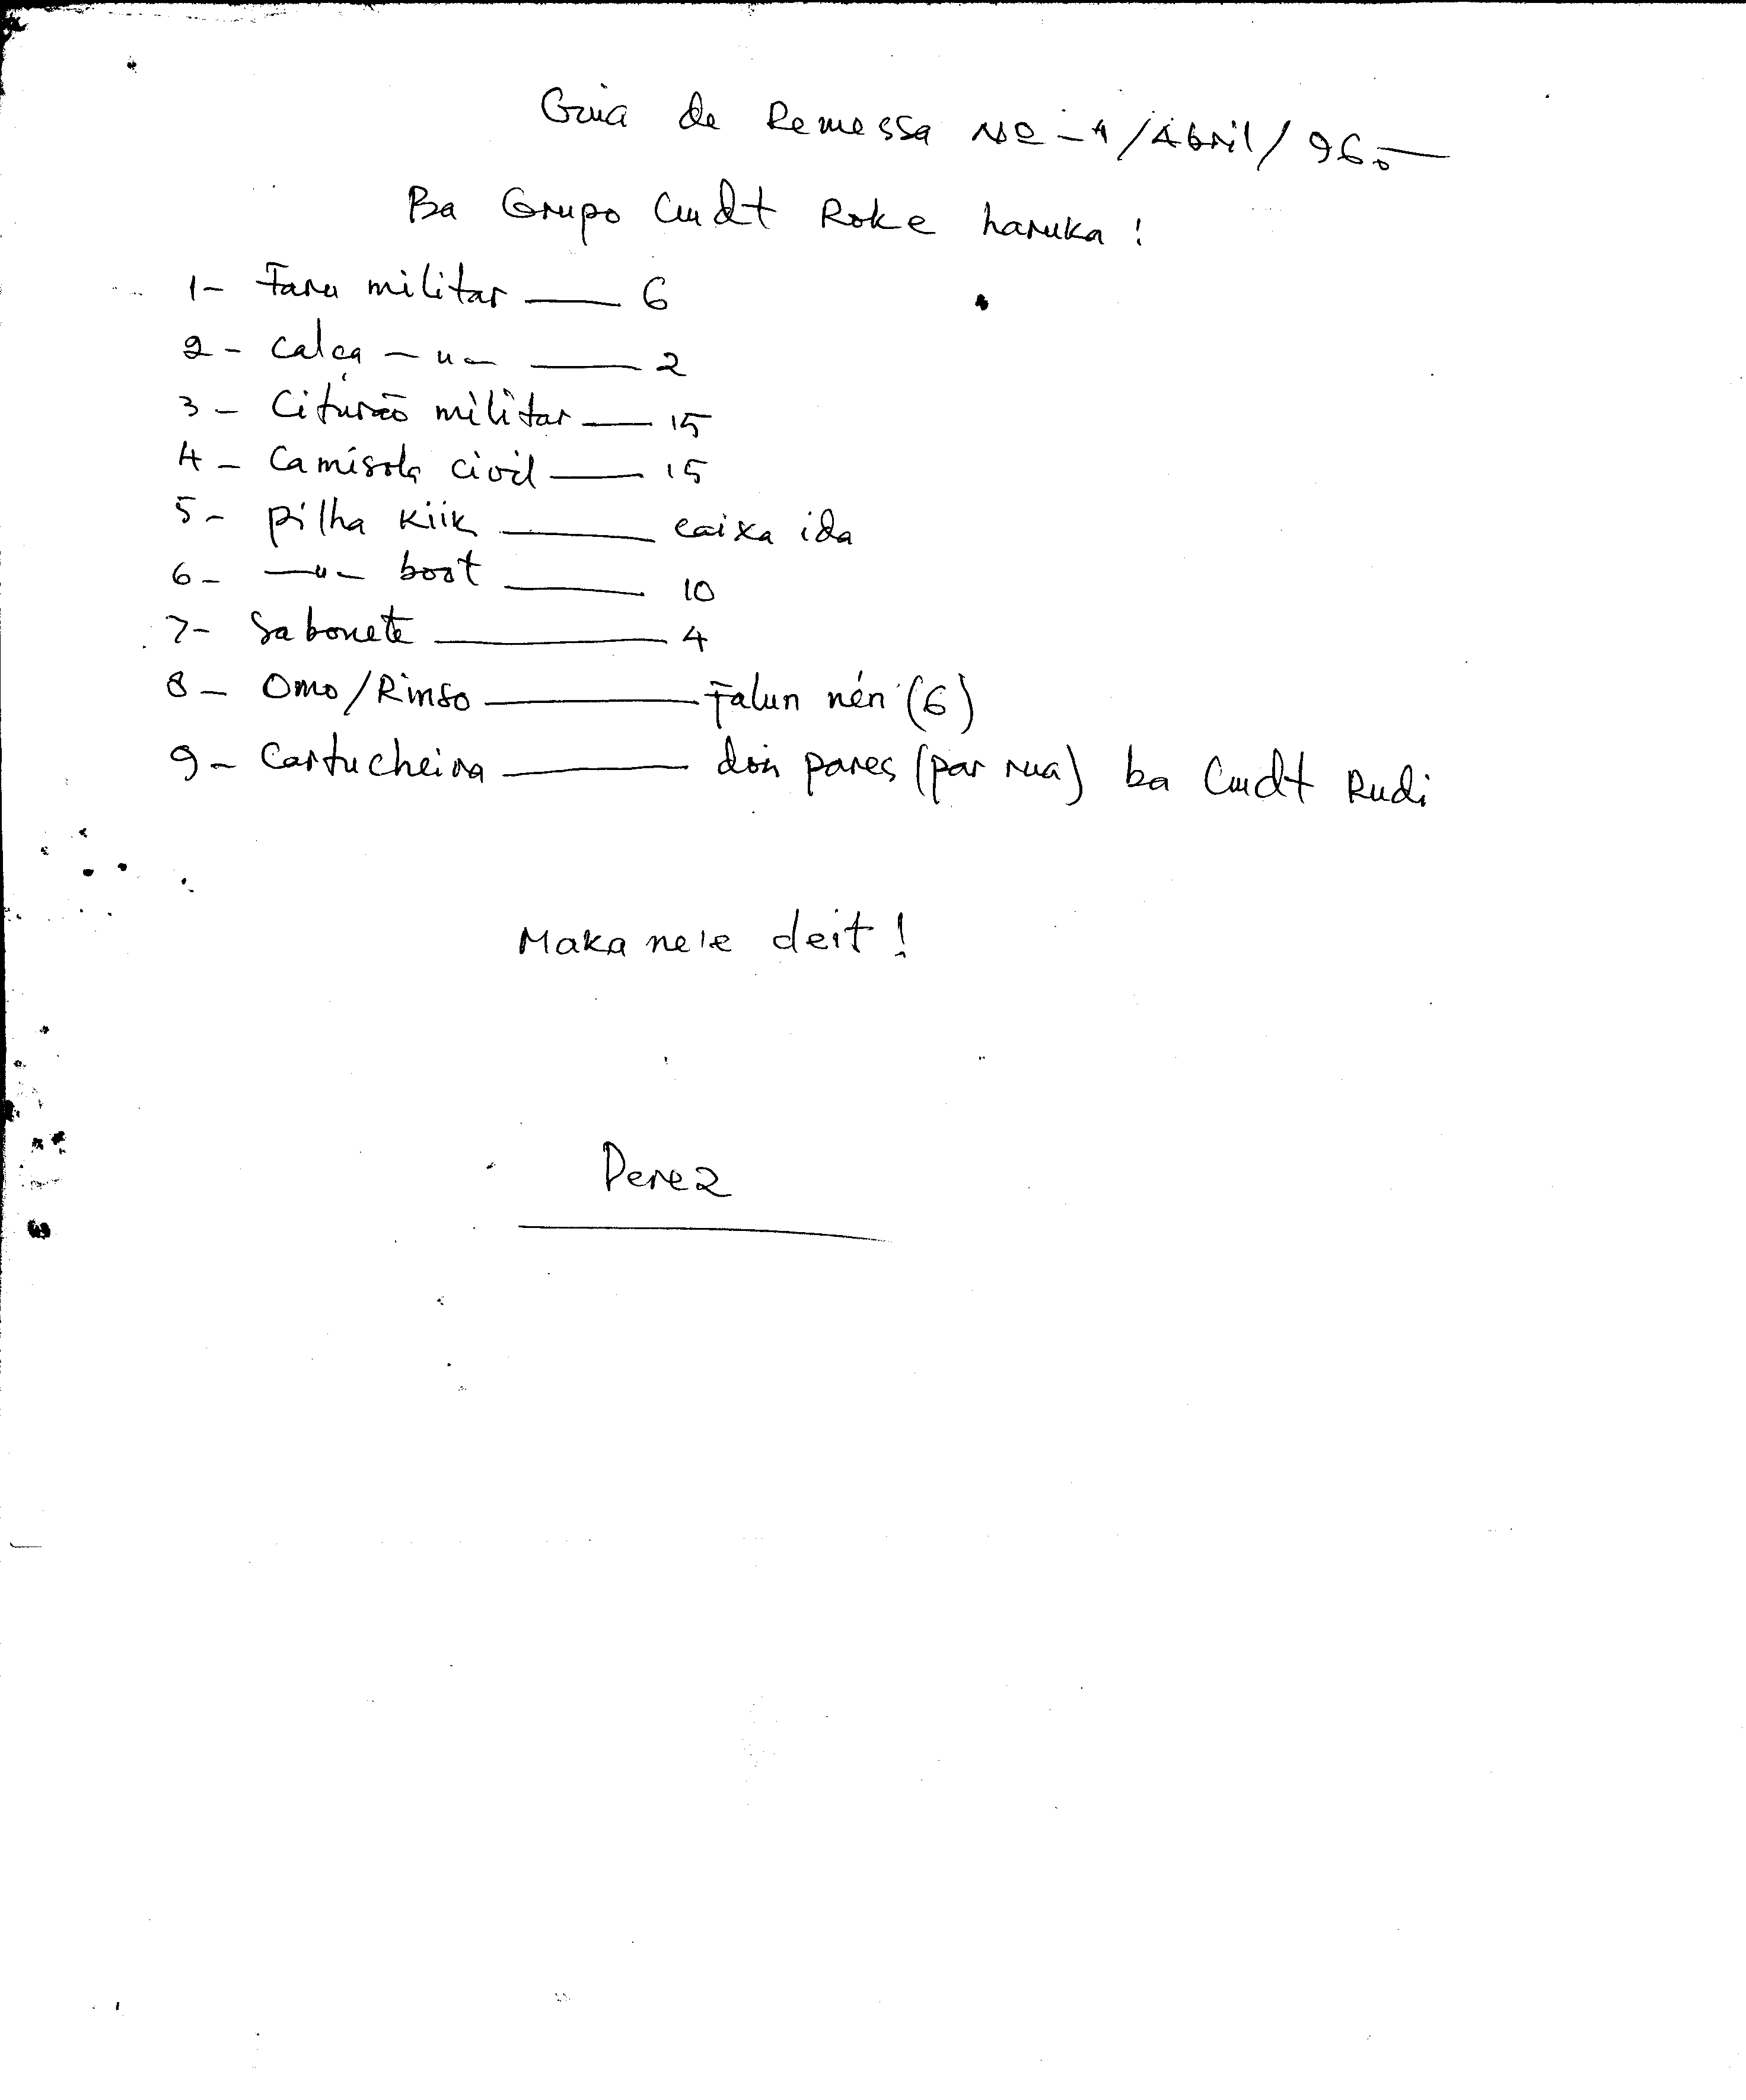 Guia de Remessa Nº - 4/Abril/96.-
Ba Grupo Cmdt Roke haruka:
1- Faru militar — 6
2- Calça —"— — 2
3- Citurão militar — 15
4- Camisola civil — 15
5- pilha kiik — caixa ida
6- —"— boot — 10
7- Sabonete — 4
8- Omo/Rinso — Falun nén (6)
9- Cartucheira — dois pares (par rua) ba Cmdt Rudi
Maka ne'e deit!
Perez